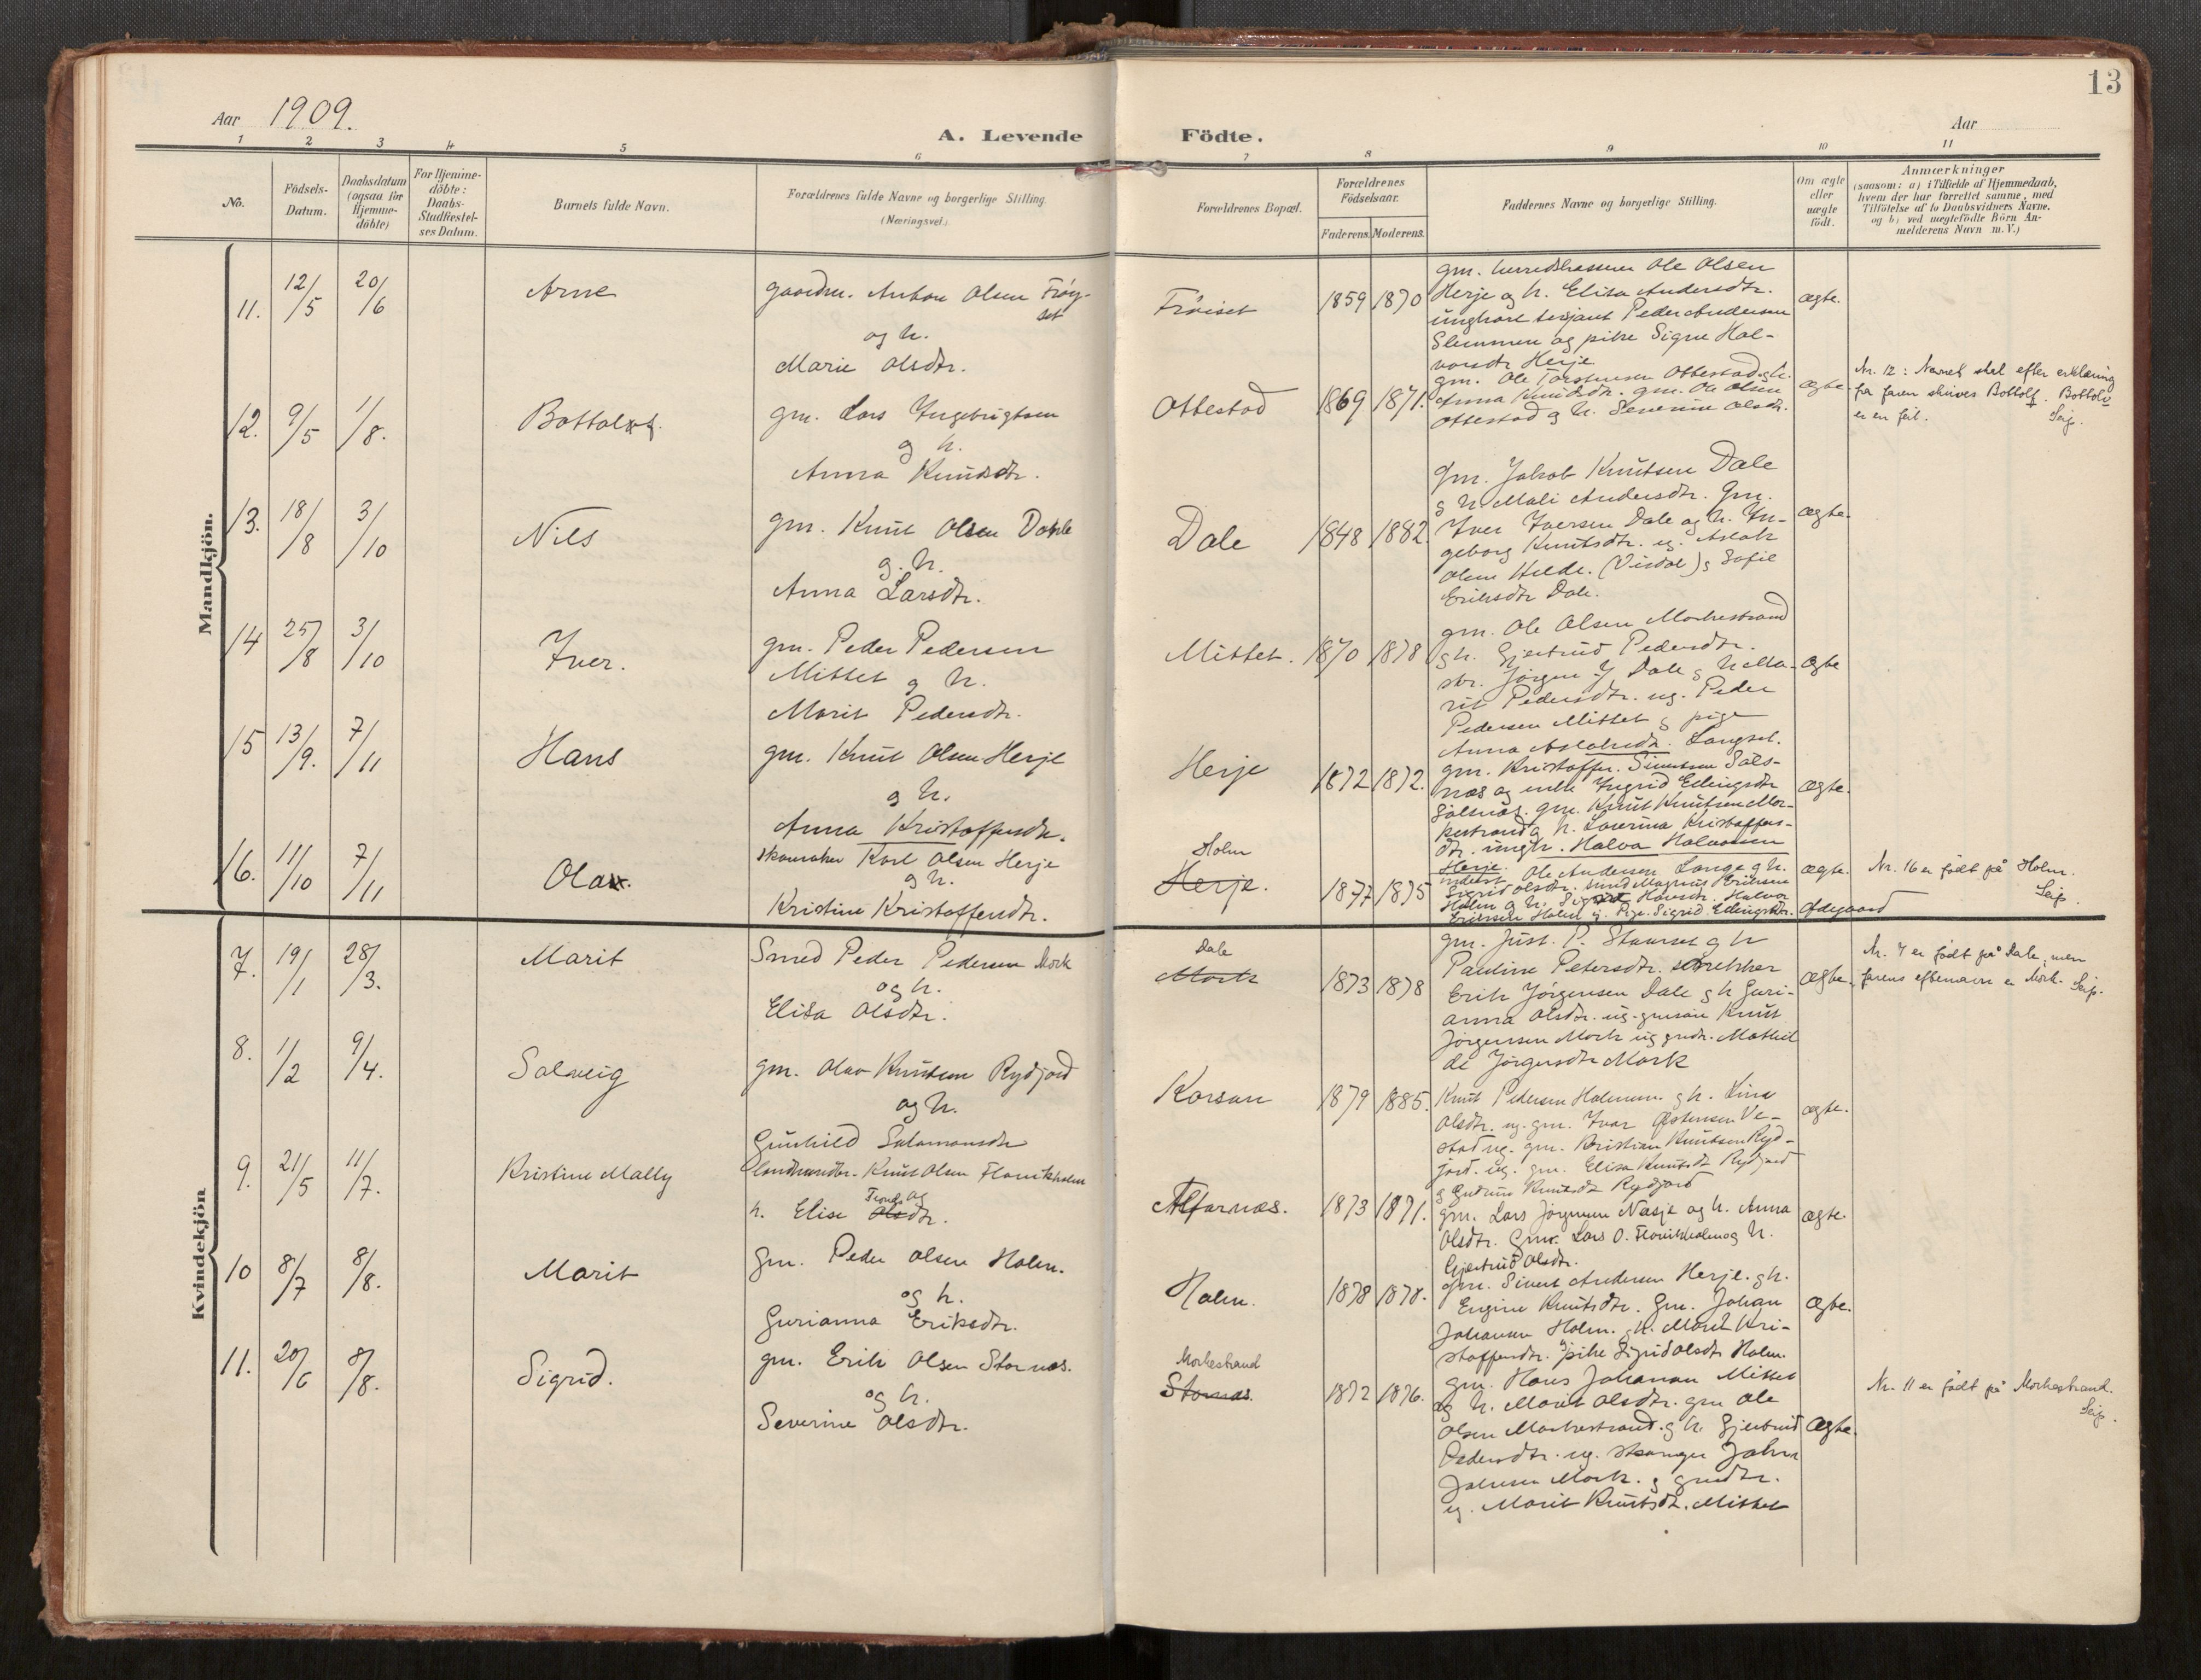 13
Aar 1909.
A. Levende Födte.
Aar
1 2 3 4 5 6 7 8 9 10 11
No.
Födsels-
Datum.
Daabsdatum
(ogsaa for
Hjemme-
döbte)
For Hjemme-
döbte:
Daabs-
Stadfæstel-
ses Datum.
Barnets fulde Navn.
Forældrenes fulde Navne og borgerlige Stilling.
(Næringsvei.)
Forældrenes Bopæl.
Forældrenes
Födselsaar.
Faderens. Moderens.
Faddernes Navne og borgerlige Stilling.
Om ægte
eller
uægte
födt.
Anmærkninger
(saasom: a) i Tilfælde af Hjemmedaab,
hvem der har forrettet samme, med
Tilföielse af to Daabsvidners Navne,
og b) ved uægtefödte Börn An-
melderens Navn m. V.)
Mandkjön.
11. 12/5 20/6 Arne
gaardm. Anton Olsen Frøy-
set
og h.
Marie Olsdtr.
Frøiset 1859 1870
gm. herredskasserer Ole Olsen
Herje og h. Elisa Andersdtr.
ungkarl serjant Peder Andersen
Slemmen og pike Signe Hal-
vorsdtr Herje
ægte.
12. 9/5 1/8. Bottolf.
gm. Lars Ingebrigtsen
og h.
Anna Knudsdtr.
Ottestad 1869 1871.
gm. Ole Torstensen Ottestad og h.
Anna Knudsdtr. gm. Ole Olsen
Ottestad og h. Severine Olsdtr.
ægte.
Nr. 12: Navnet skal efter erklæring
fra faren skrives Bottolf. Bottolv
er en feil. Seip.
13. 18/8 3/10 Nils
gm. Knut Olsen Dale
og h.
Anna Larsdtr.
Dale 1848 1882.
Gm. Jakob Knutsen Dale
og h. Mali Andersdtr. Gm.
Iver Iversen Dale og h. In-
geborg Knutsdtr. ug. Aslak
Olsen Hilde. (Visdal) og Sofie
Eriksdtr Dale.
ægte.
14 25/8 3/10 Iver.
gm. Peder Pedersen
Mittet og h.
Marit Pedersdtr.
Mittet. 1870 1878
gm. Ole Olsen Morkestrand
og h. Gjertrud Pedersdtr.
skr. Jörgen J Dale og h. Ma-
rit Pedersdtr. ug. Peder
Pedersen Mittet og pige
Anna Aslaksdtr. Langset.
ægte
15 13/9. 7/11 Hans
gm. Knut Olsen Herje
og h.
Anna Kristoffersdtr.
Herje 1872 1872.
gm. Kristoffer Simensen Sals-
næs og enke Ingrid Edingsdtr
Salsnæs. gm. Knut Knutsen Mor-
kestrand og h. Laverina Kristoffers-
dtr. ungk. Halva Halvorsen
Herje.
ægte.
16. 11/10 7/11 Ola.
skomaker Karl Olsen Herje
og h.
Kristine Kristoffersdtr.
Holm
Herje. 1877 1875
Ole Andersen Lange og h.
Sigrid Olsdtr. smed Magnus Eriksen
Holm og h. Sigrid Halvorsdtr. Halvor
Eriksen Holm ug. Pige. Sigrid Edingsdtr. Ødegaard
ægte.
Nr. 16 er født på Holm.
Seip.
Kvindekjön
7. 19/1 28/3. Marit
Smed Peder Pedersen Mork
og h.
Elisa Olsdtr.
Dale
Mork 1873 1878
gm. Just. P. Staurset og h
Pauline Petersdtr. snekker
Erik Jörgensen Dale og h Guri-
anna Olsdtr. ug. gmsön Knut
Jörgensen Mork ug gmdtr. Mathil
de Jörgensdtr Mork
ægte.
Nr. 7 er født på Dale, men
farens efternavn er Mork. Seip.
8. 1/2 9/4. Solveig
gm. Olav Knutsen Rydjord
og h.
Gunhild Salamonsdtr
Korsan 1879 1885.
Knut Pedersen Holmem. og h. Line
Olsdtr. ug. gm. Ivar Østensen Ve-
stad ug. gm. Kristian Knutsen Ryd-
jord. ug. gm. Elisa Knutsdtr Rydjord
og Gudrun Knutsdtr Rydjord
ægte.
9. 21/5 11/7. Kristine Mally
landhandler. Knut Olsen Flovikholm
og
h. Elise Tronds
Olsdtr.
Alfarnæs. 1873 1871.
gm. Lars Jörgensen Nesje og h. Anna
Olsdtr. Gmk. Lars O. Flovikholm og h.
Gjertrud Olsdtr.
ægte.
10 8/7 8/8. Marit
Gm. Peder Olsen Holm.
og h.
Gurianna Eriksdtr.
Holm. 1878 1878.
gm. Sivert Andersen Herje. og h.
Engine Knutsdtr. Gm. Johan
Johansen Holm. og h. Marit Kri-
stoffersdtr. og pike Sigrid Olsdtr Holm.
ægte.
11. 20/6 8/8. Sigrid.
gm. Erik Olsen Stornæs.
og h.
Severine Olsdtr.
Morkestrand
Stornæs. 1872 1876.
gm. Hans Johansen Mittet
og h. Marit Olsdtr. gm Ole
Olsen Morkestrand. og h. Gjertrud
Pedersdtr. ug. skomager John
Johnsen Mork. og gmdtr.
ug. Marit Knutsdtr. Mittet
ægte.
Nr. 11 er født på Morkestrand.
Seip.